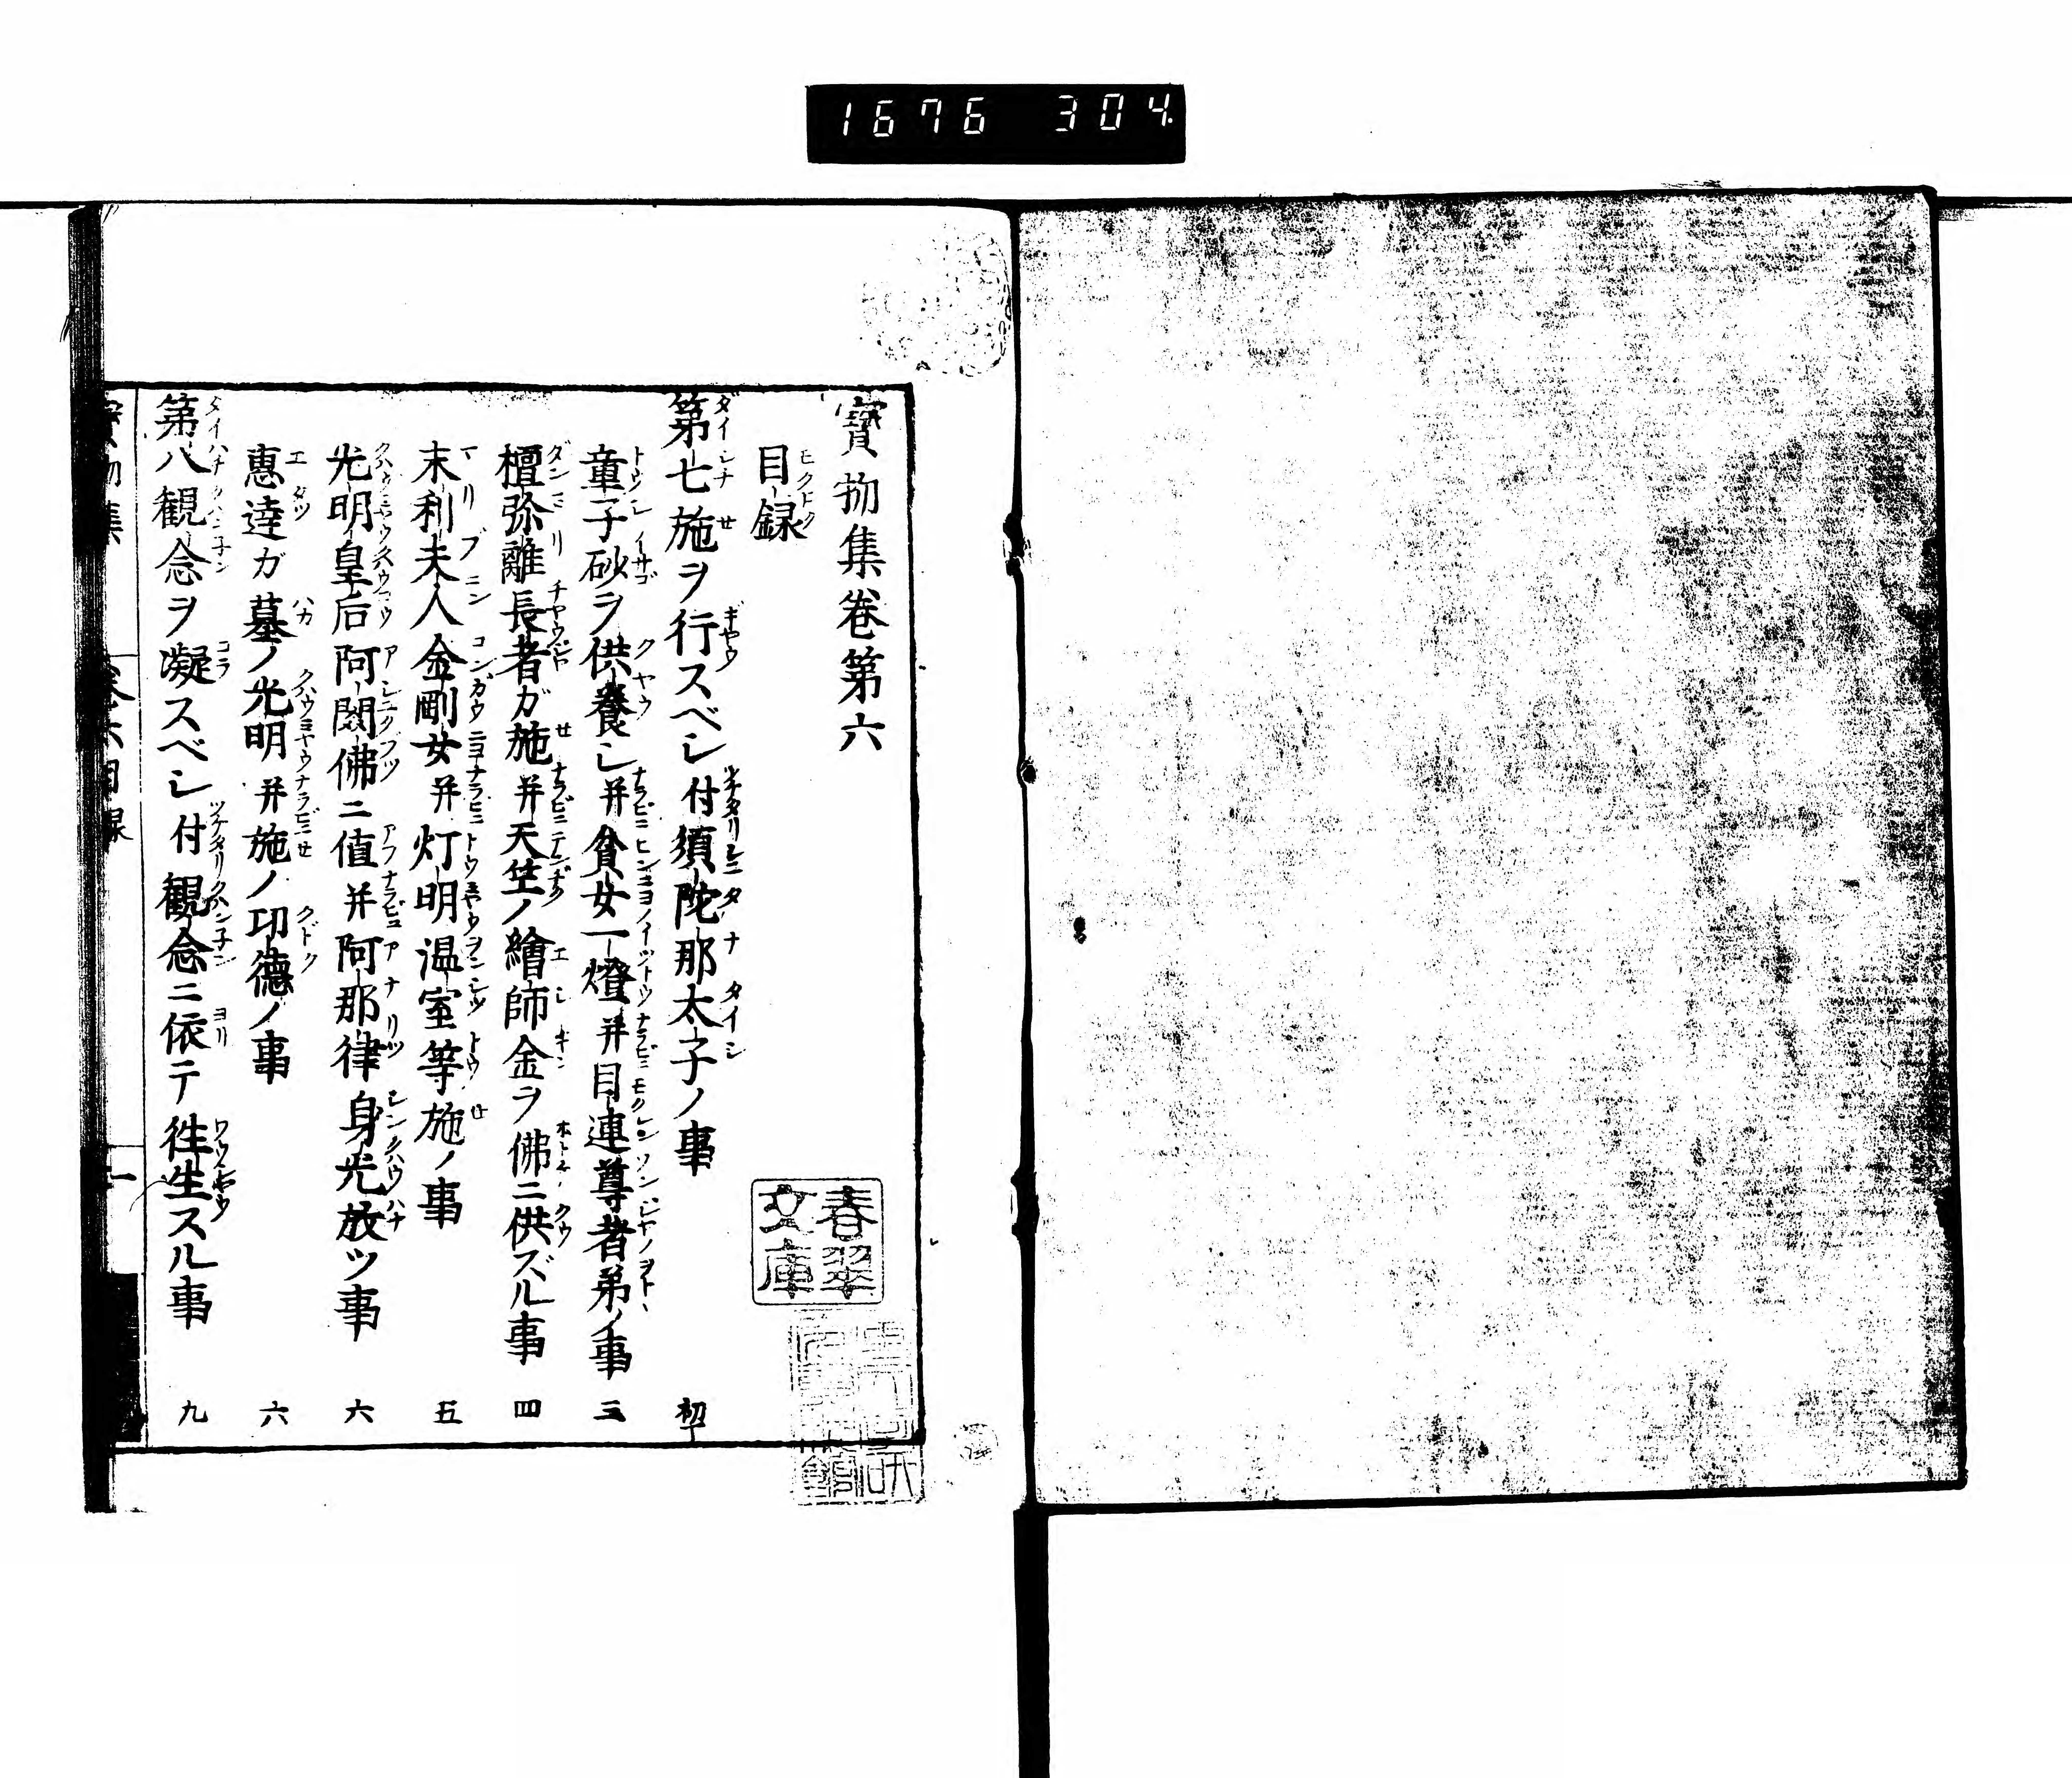 1676 304
寳物集卷第六
目録
第七施ヲ行スベシ付須陀那太子ノ事 初
童子砂ヲ供養シ并貧女一燈并目連尊者弟ノ事 三
檀弥離長者ガ施并天竺ノ繪師金ヲ佛ニ供ズル事 四
末利夫人金剛女并灯明温室等施ノ事 五
光明皇后阿閦佛ニ値并阿那律身光放ツ事 六
惠達ガ墓ノ光明并施ノ功德ノ事 六
第八観念ヲ凝スベシ付観念ニ依テ徃生スル事 九
春翠
文庫